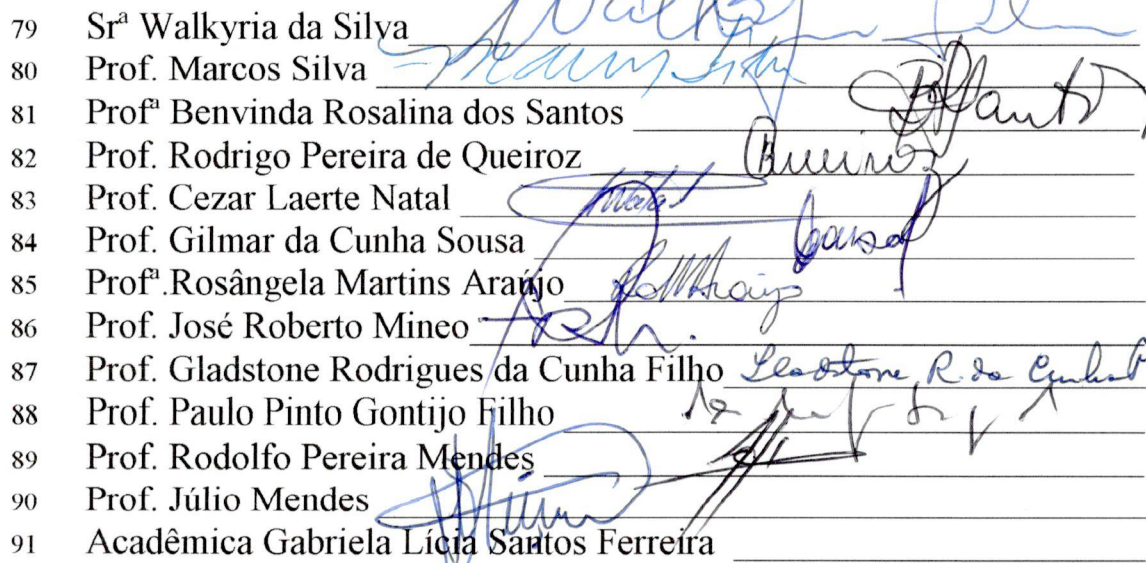 79 Srª Walkyria da Silva
80 Prof. Marcos Silva
81 Profª Benvinda Rosalina dos Santos
82 Prof. Rodrigo Pereira de Queiroz Queiroz
83 Prof. Cezar Laerte Natal Natal
84 Prof. Gilmar da Cunha Sousa
85 Profª.Rosângela Martins Araújo RoMAraújo
86 Prof. José Roberto Mineo
87 Prof. Gladstone Rodrigues da Cunha Filho Gladstone R. da Cunha F
88 Prof. Paulo Pinto Gontijo Filho
89 Prof. Rodolfo Pereira Mendes
90 Prof. Júlio Mendes
91 Acadêmica Gabriela Lícia Santos Ferreira